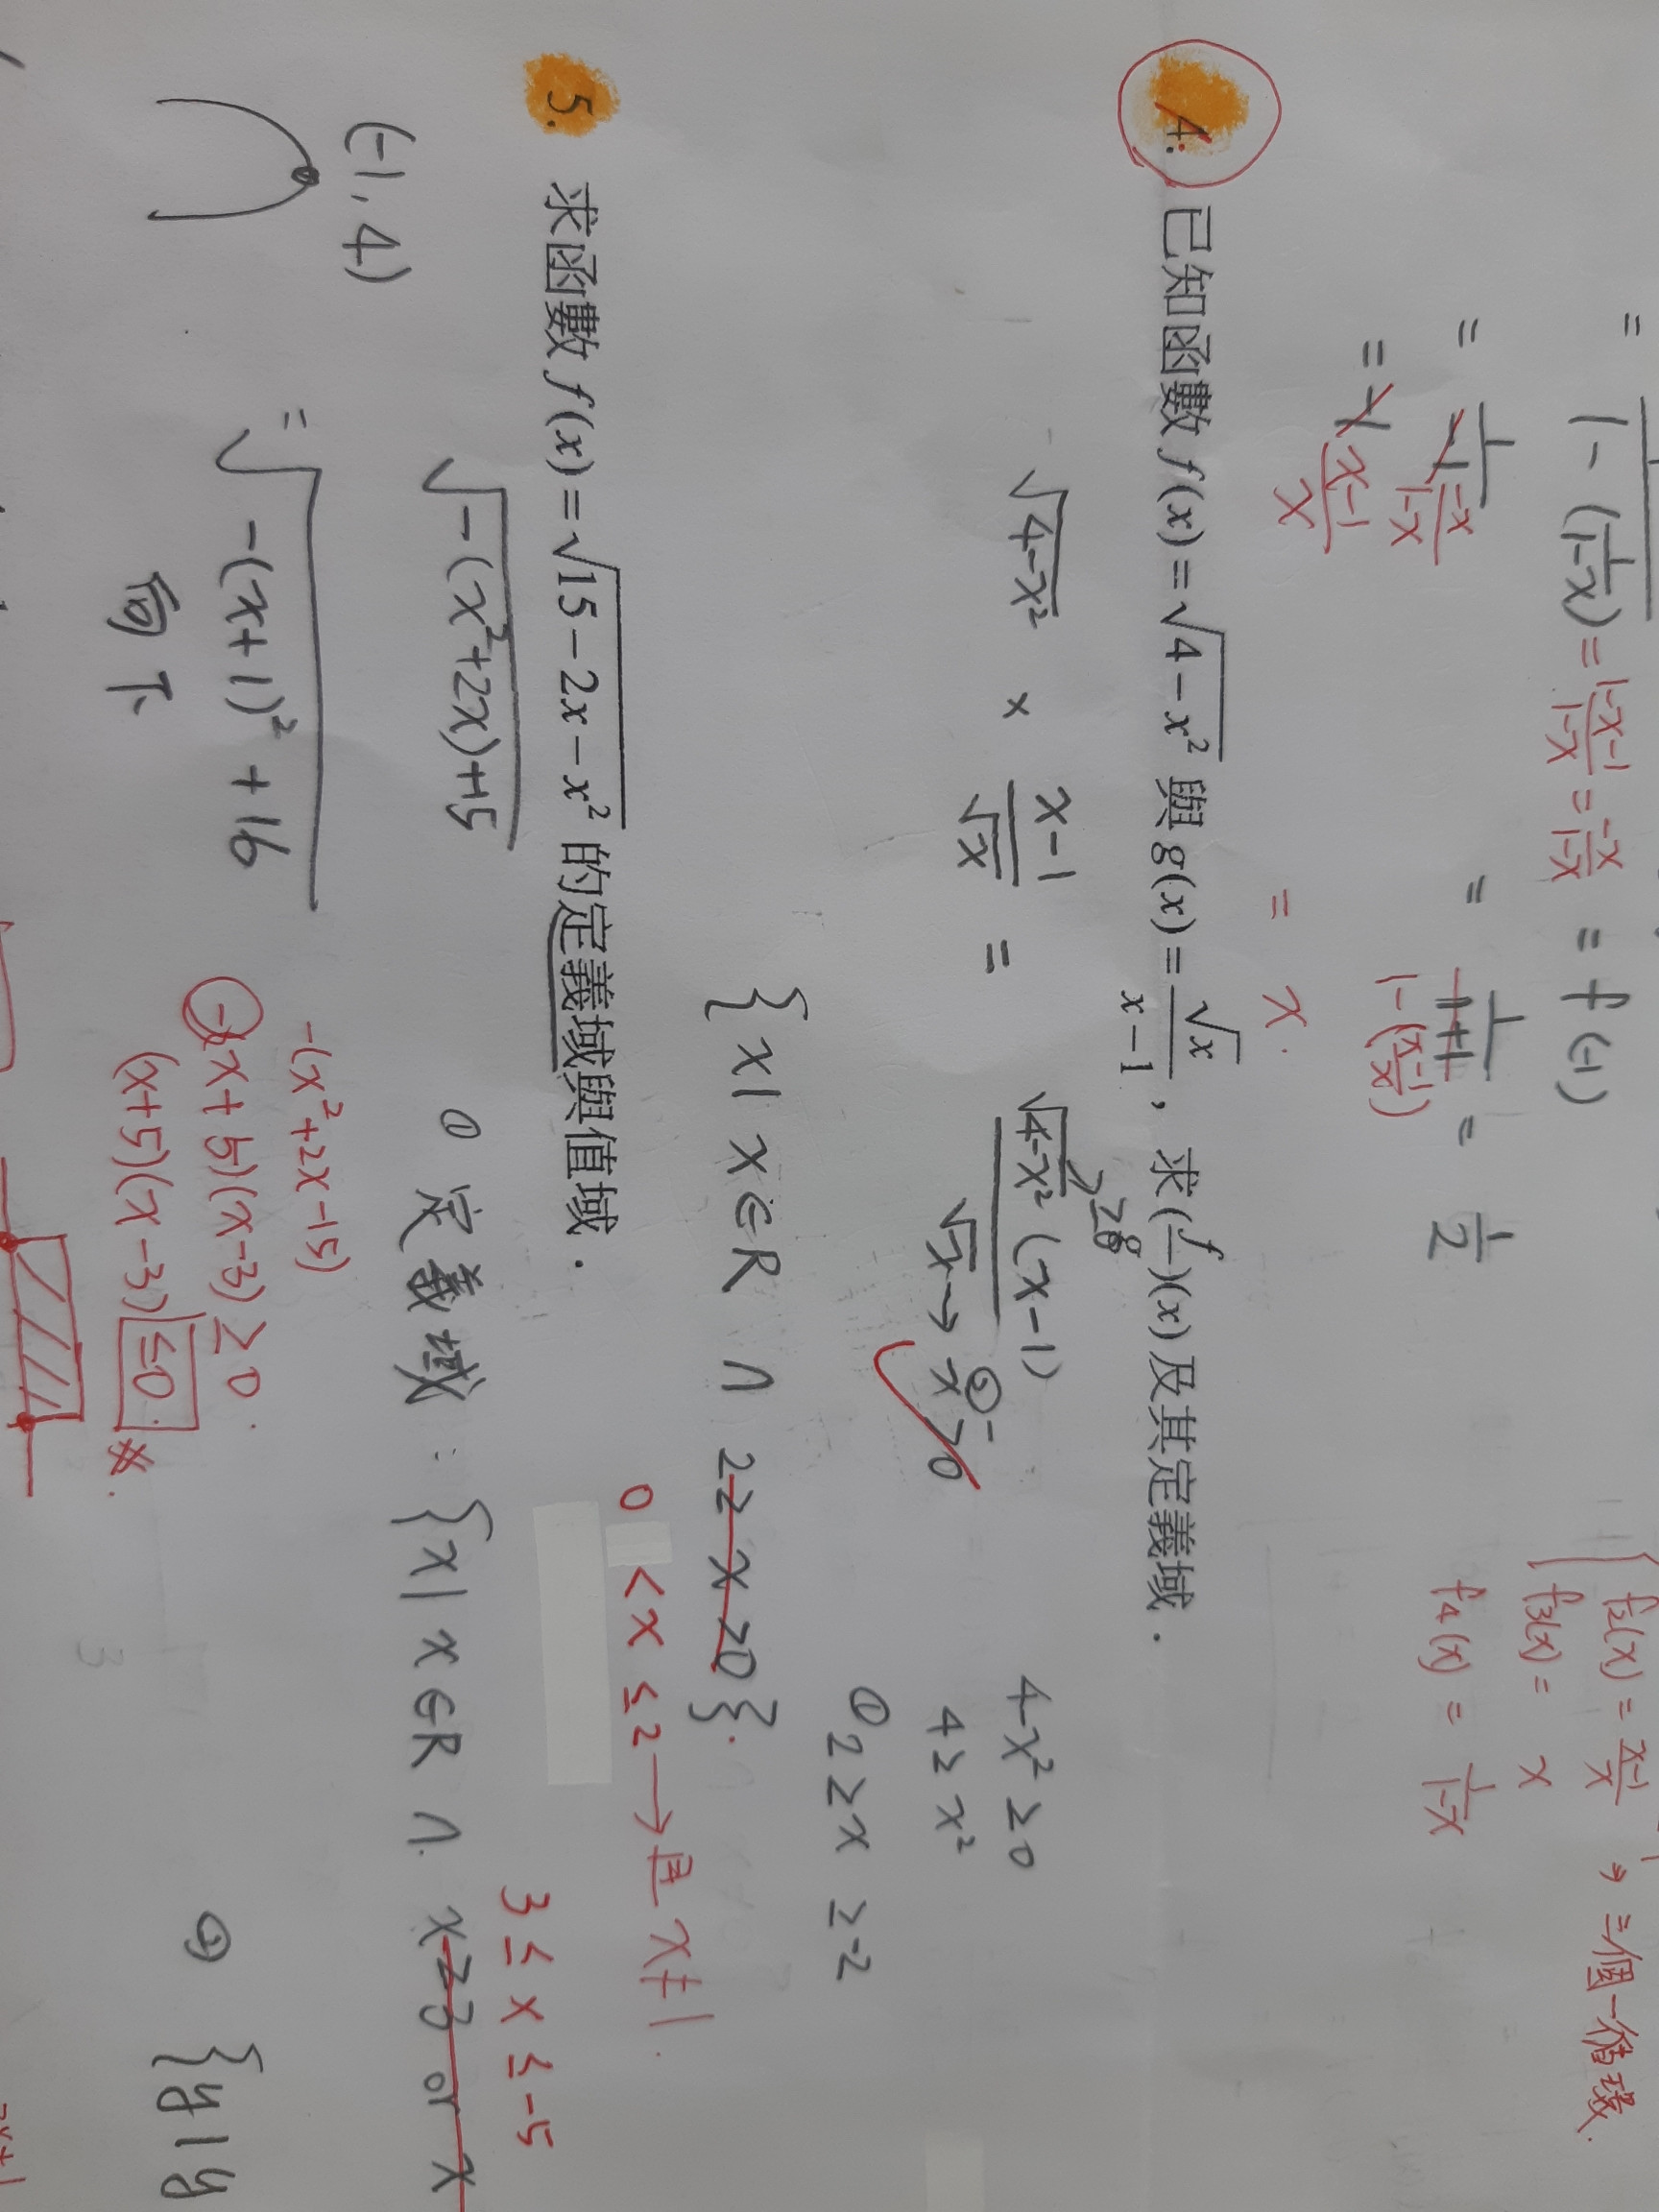 = 1/(1-(1/(1-x))) = (1-x-1)/(1-x) = -x/(1-x) = f(-1)
= 1/(-x/(1-x)) = 1/(1+1) = 1/2
1-((x-1)/x)
= (x-1)/x
= x.
f2(x) = (x-1)/x
f3(x) = x
f4(x) = 1/(1-x)
, 三個一循環.
4. 已知函數 f(x)=√(4-x²) 與 g(x)=√x/(x-1), 求 (f/g)(x) 及其定義域.
√(4-x²) × (x-1)/√x = √(4-x²)(x-1)/√x
≥0
② x>0
4-x² ≥0
4≥x²
① 2≥x ≥-2
{x| x∈R ∩ 2≥x>0}.
0 <x ≤2 → 且 x≠1.
5. 求函數 f(x)=√(15-2x-x²) 的定義域與值域.
√(-(x²+2x)+15)
① 定義域: {x| x∈R ∩ x≥3 or x
3≤x≤-5
(-1,4)
=√(-(x+1)²+16)
向下
-(x²+2x-15)
-(x+5)(x-3)≥0.
(x+5)(x-3)≤0.
※.
② {y|y
3